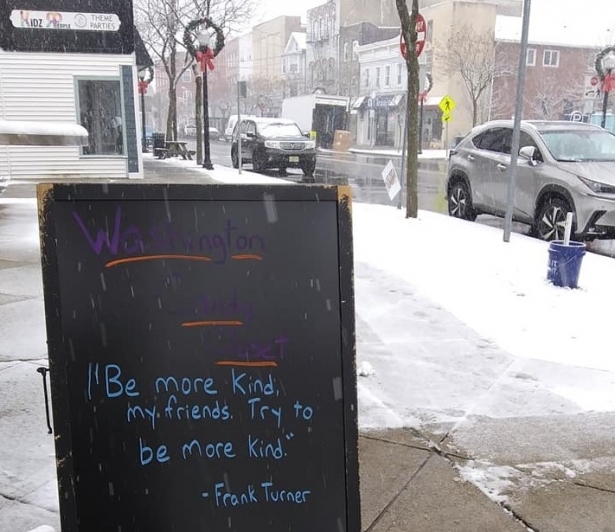 KIDZ
THEME
PARTIES
Washington
"Be more kind,
my friends. Try to
be more kind."
- Frank Turner